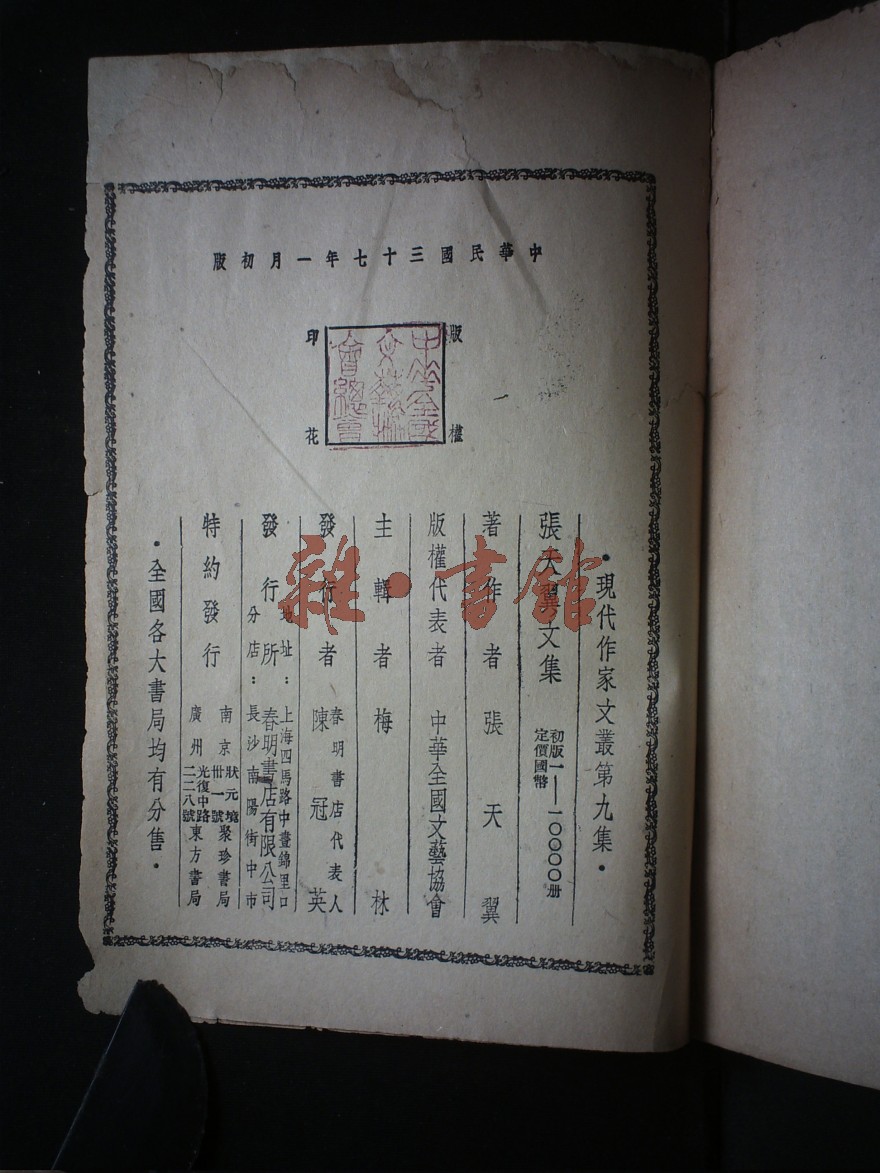 中華民國三十七年一月初版
版權
印花
中華全國
文藝協
會總會
•現代作家文叢第九集•
張天翼文集
初版一——一〇〇〇〇册
定價國幣
著作者 張天翼
版權代表者 中華全國文藝協會
主輯者 梅林
發行者 春明書店代表人
陳冠英
地址：上海四馬路中晝錦里口
發行所 春明書店有限公司
分店：長沙南陽街中市
特約發行
南京狀元境卅一號聚珍書局
廣州光復中路二二八號東方書局
•全國各大書局均有分售•
雜·書館